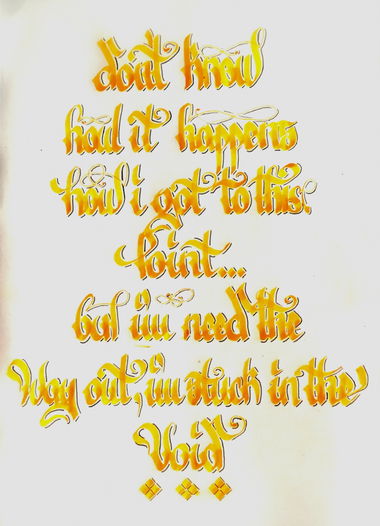 don't know
how it happens
how i got to this
Point...
but i'm need the
Way out, i'm stuck in the
Void